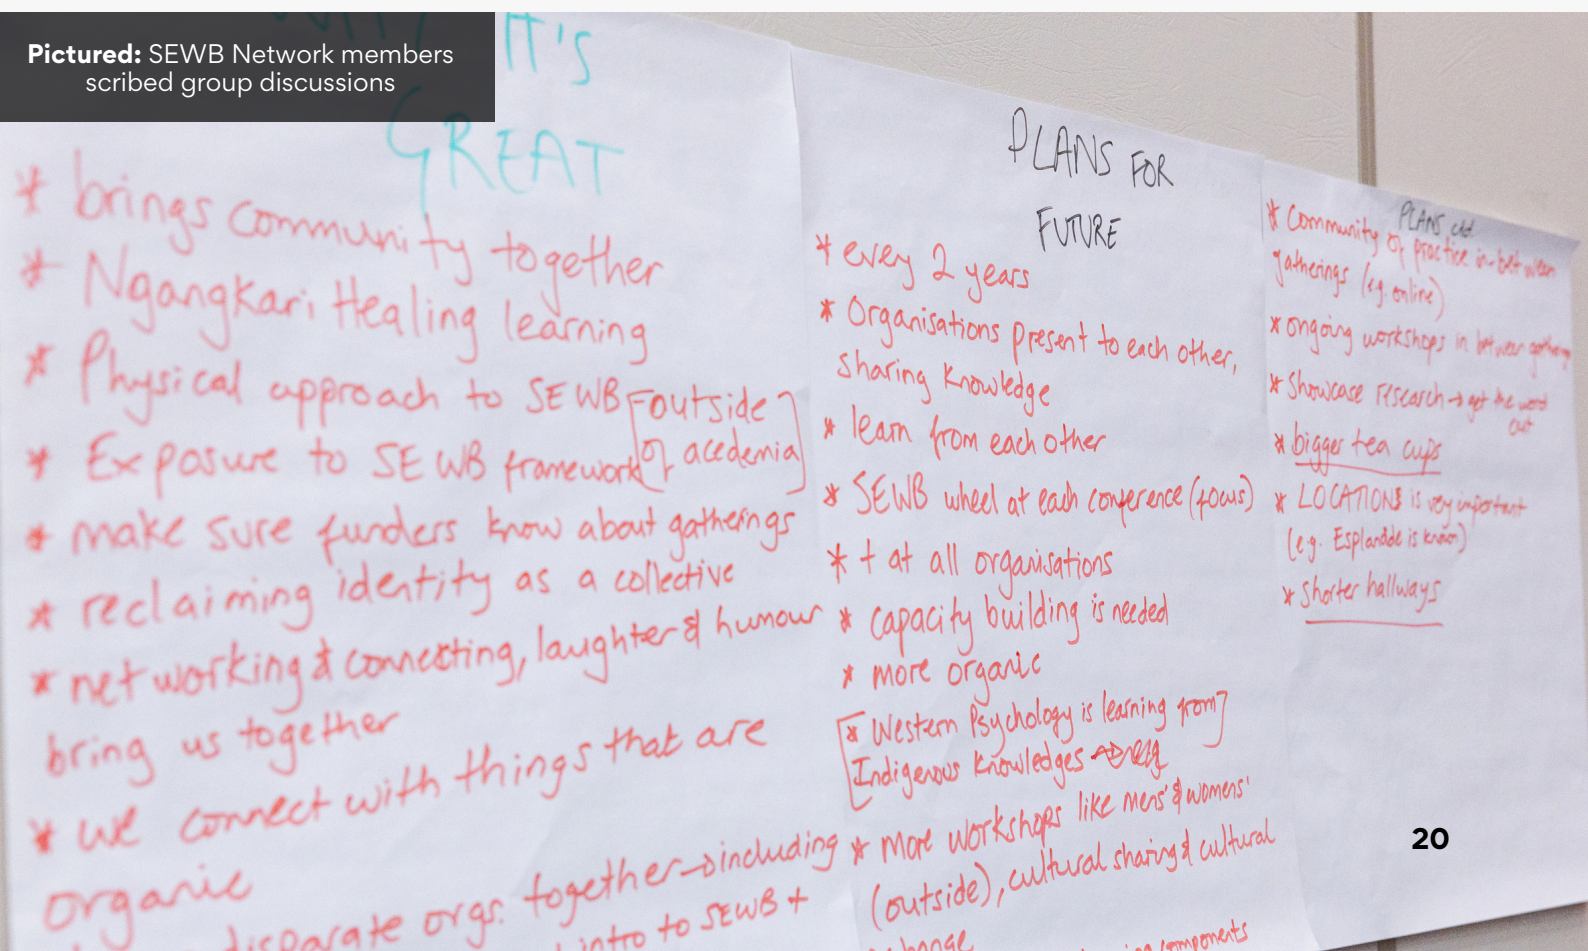 Pictured: SEWB Network members
scribed group discussions
IT'S
GREAT
* brings community together
* Ngangkari Healing learning
* Physical approach to SEWB
* Exposure to SEWB framework
[outside
of acedemia]
* make sure funders know about gatherings
* reclaiming identity as a collective
* networking & connecting, laughter & humour
bring us together
* we connect with things that are
organic
disparate orgs. together → including
intro to SEWB +
PLANS FOR
FUTURE
* every 2 years
* Organisations present to each other,
sharing knowledge
* learn from each other
* SEWB wheel at each conference (focus)
* + at all organisations
* capacity building is needed
* more organic
[* Western Psychology is learning from]
Indigenous Knowledges
* more workshops like mens' & womens'
(outside), cultural sharing & cultural
components
PLANS ctd.
* Community of practice in-between
gatherings (e.g. online)
* ongoing workshops in between gatherings
* Showcase research → get the word
out
* bigger tea cups
* LOCATIONS is very important
(e.g. Esplandde is known)
* shorter hallways
20